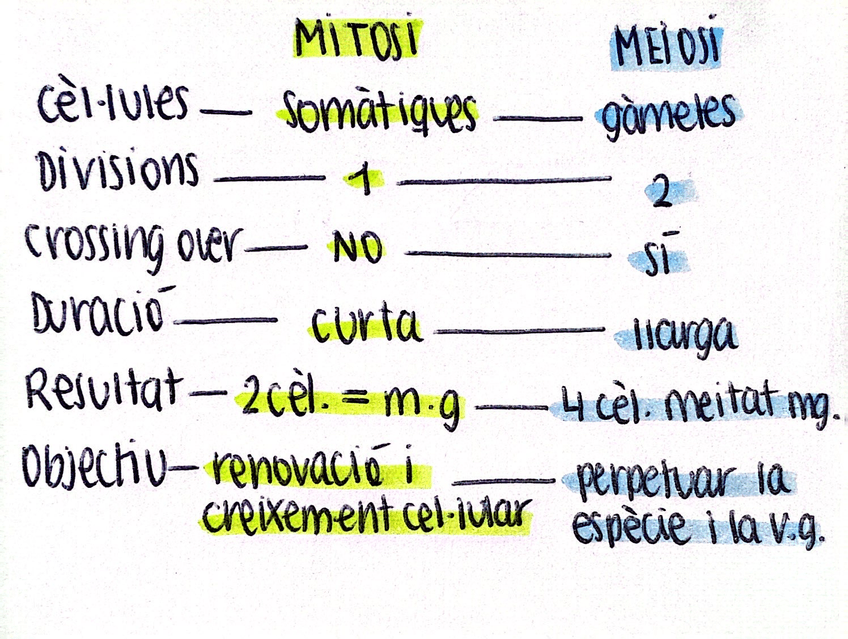 MITOSI MEIOSI
cèl·lules — somàtiques — gàmetes
Divisions — 1 — 2
crossing over — NO — sí
Duració — curta — llarga
Resultat — 2 cèl. = m.g — 4 cèl. meitat mg.
Objectiu — renovació i — perpetuar la
creixement cel·lular espècie i la v.g.